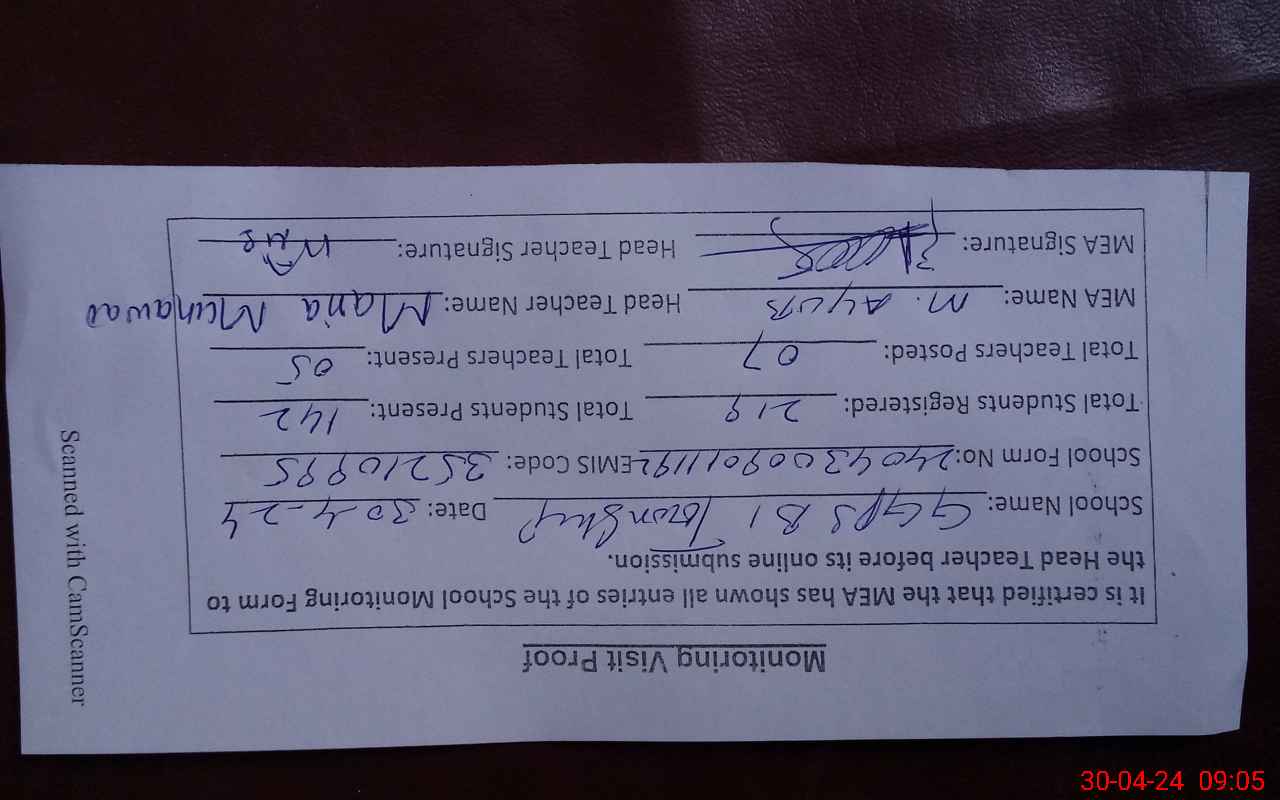 Monitoring Visit Proof
It is certified that the MEA has shown all entries of the School Monitoring Form to
the Head Teacher before its online submission.
School Name: GGPS B1 Township Date: 30-4-24
School Form No: 24043009011192 EMIS Code: 35210995
Total Students Registered: 219 Total Students Present: 142
Total Teachers Posted: 07 Total Teachers Present: 05
MEA Name: M. AYUB Head Teacher Name: Maria Munawar
MEA Signature: Head Teacher Signature:
Scanned with CamScanner
30-04-24 09:05